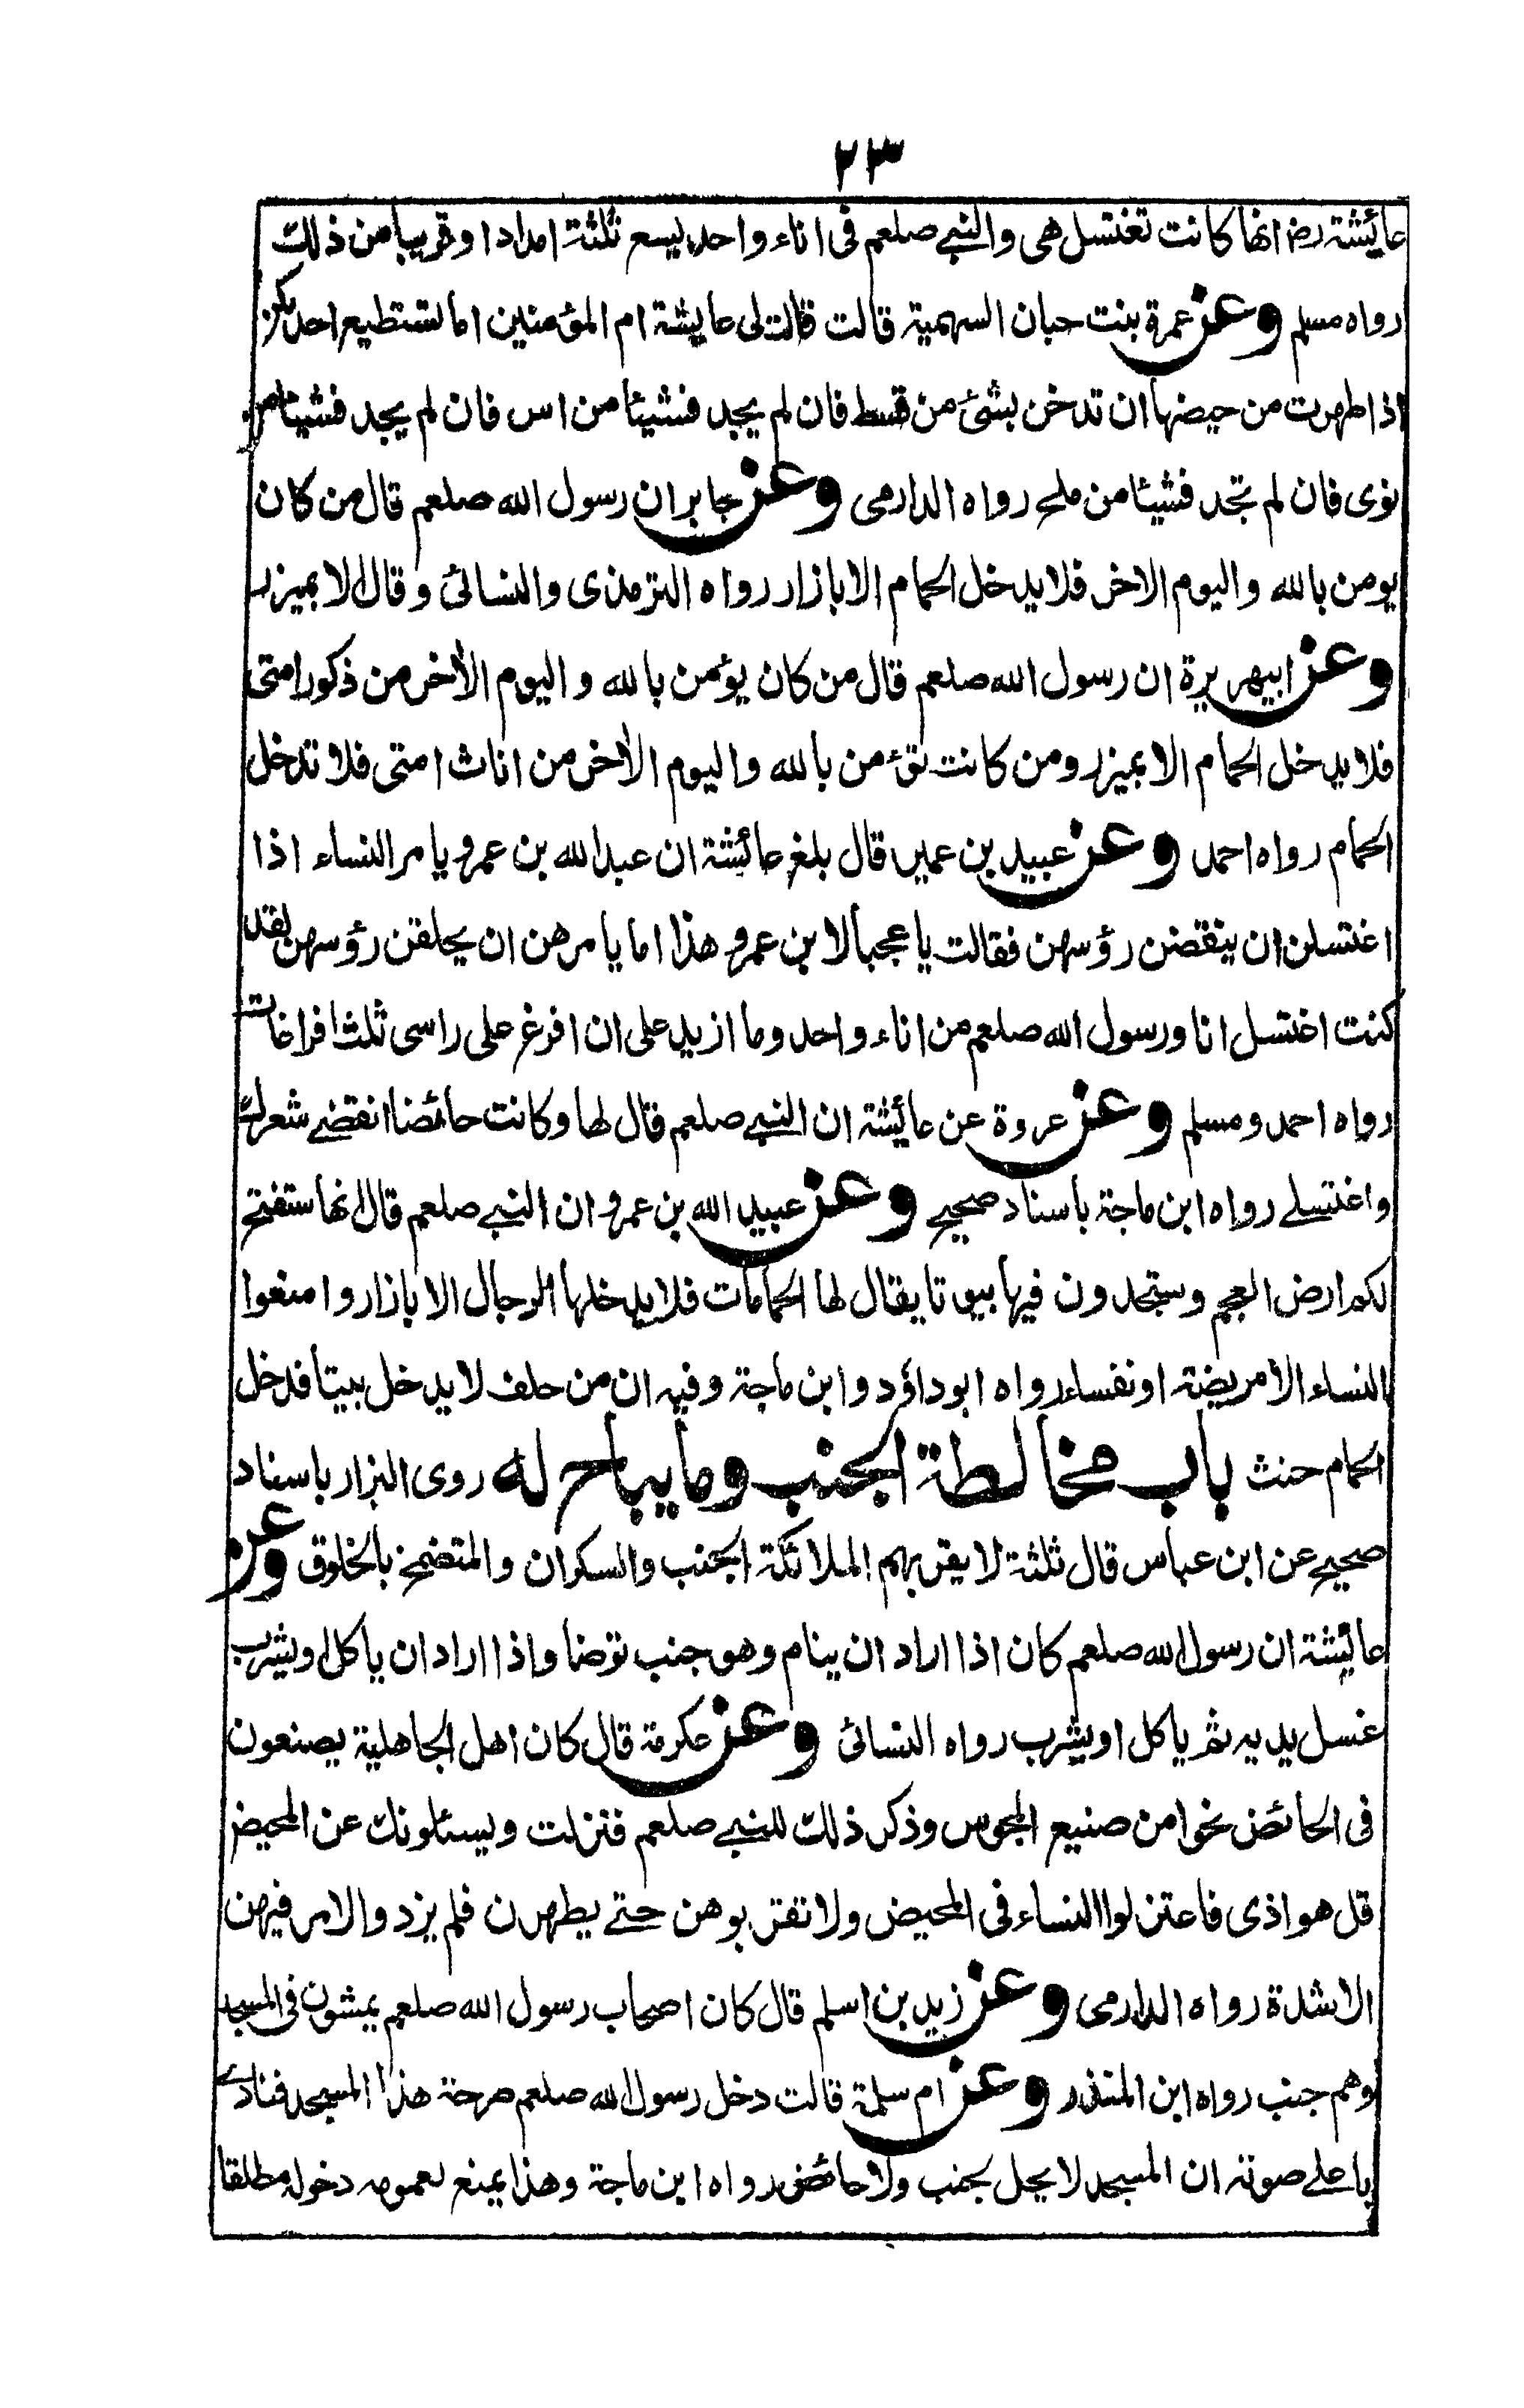 ٢٣
عائشة رض انها كانت تغتسل هى والنبي صلعم فى اناء واحد يسع ثلثة امداد او قريبا من ذلك
رواه مسلم وعن عمرة بنت حبان السهمية قالت قالت لى عايشة ام المؤمنين اما تستطيع احدىكن
اذا طهرت من حيضها ان تدخن بشئ من قسط فان لم يجد فشيئا من اس فان لم يجد فشيئا من
نوى فان لم تجد فشيئا من ملح رواه الدارمى وعن جابر ان رسول الله صلعم قال من كان
يومن بالله واليوم الاخر فلا يدخل الحمام الا بازار رواه الترمذى والنسائى وقال الا بميزر
وعن ابيهريرة ان رسول الله صلعم قال من كان يؤمن بالله واليوم الأخر من ذكور امتى
فلا يدخل الحمام الا بميزر ومن كانت تؤمن بالله واليوم الأخر من اناث امتى فلا تدخل
الحمام رواه احمد وعن عبيد بن عمير قال بلغ عائشة ان عبد الله بن عمرو يامر النساء اذا
اغتسلن ان ينقضن رؤسهن فقالت يا عجبا لابن عمرو هذا اما يامرهن ان يحلقن رؤسهن لقد
كنت اغتسل انا ورسول الله صلعم من اناء واحد وما ازيد على ان افرغ على راسى ثلث افراغات
رواه احمد ومسلم وعن عروة عن عائشة ان النبي صلعم قال لها وكانت حائضا انقضي شعرك
واغتسلي رواه ابن ماجة باسناد صحيح وعن عبيد الله بن عمرو ان النبي صلعم قال انها ستفتح
لكم ارض العجم وستجدون فيها بيوتا يقال لها الحمامات فلا يدخلها الرجال الا بازار وامنعوا
النساء الا مريضة او نفساء رواه ابو داؤد وابن ماجة وفيه ان من حلف لا يدخل بيتا فدخل
الحمام حنث باب مخالطة الجنب وما يباح له روى البزار باسناد
صحيح عن ابن عباس قال ثلثة لا يقربهم الملائكة الجنب والسكران والمتضمخ بالخلوق وعن
عايشة ان رسول الله صلعم كان اذا اراد ان ينام وهو جنب توضا واذا اراد ان ياكل او يشرب
غسل يديه ثم ياكل او يشرب رواه النسائى وعن عكرمة قال كان اهل الجاهلية يصنعون
فى الحائض نحوا من صنيع المجوس وذكر ذلك للنبي صلعم فنزلت ويسئلونك عن المحيض
قل هو اذى فاعتزلوا النساء فى المحيض ولا تقربوهن حتے يطهرن فلم يزد والامر فيهن
الا شدة رواه الدارمى وعن زيد بن اسلم قال كان اصحاب رسول الله صلعم يمشون فى المسجد
وهم جنب رواه ابن المنذر وعن ام سلمة قالت دخل رسول الله صلعم صرحة هذا المسجد فنادے
باعلے صوته ان المسجد لا يحل لجنب ولا حائض رواه ابن ماجة وهذا يمنع لعمومه دخوله مطلقا